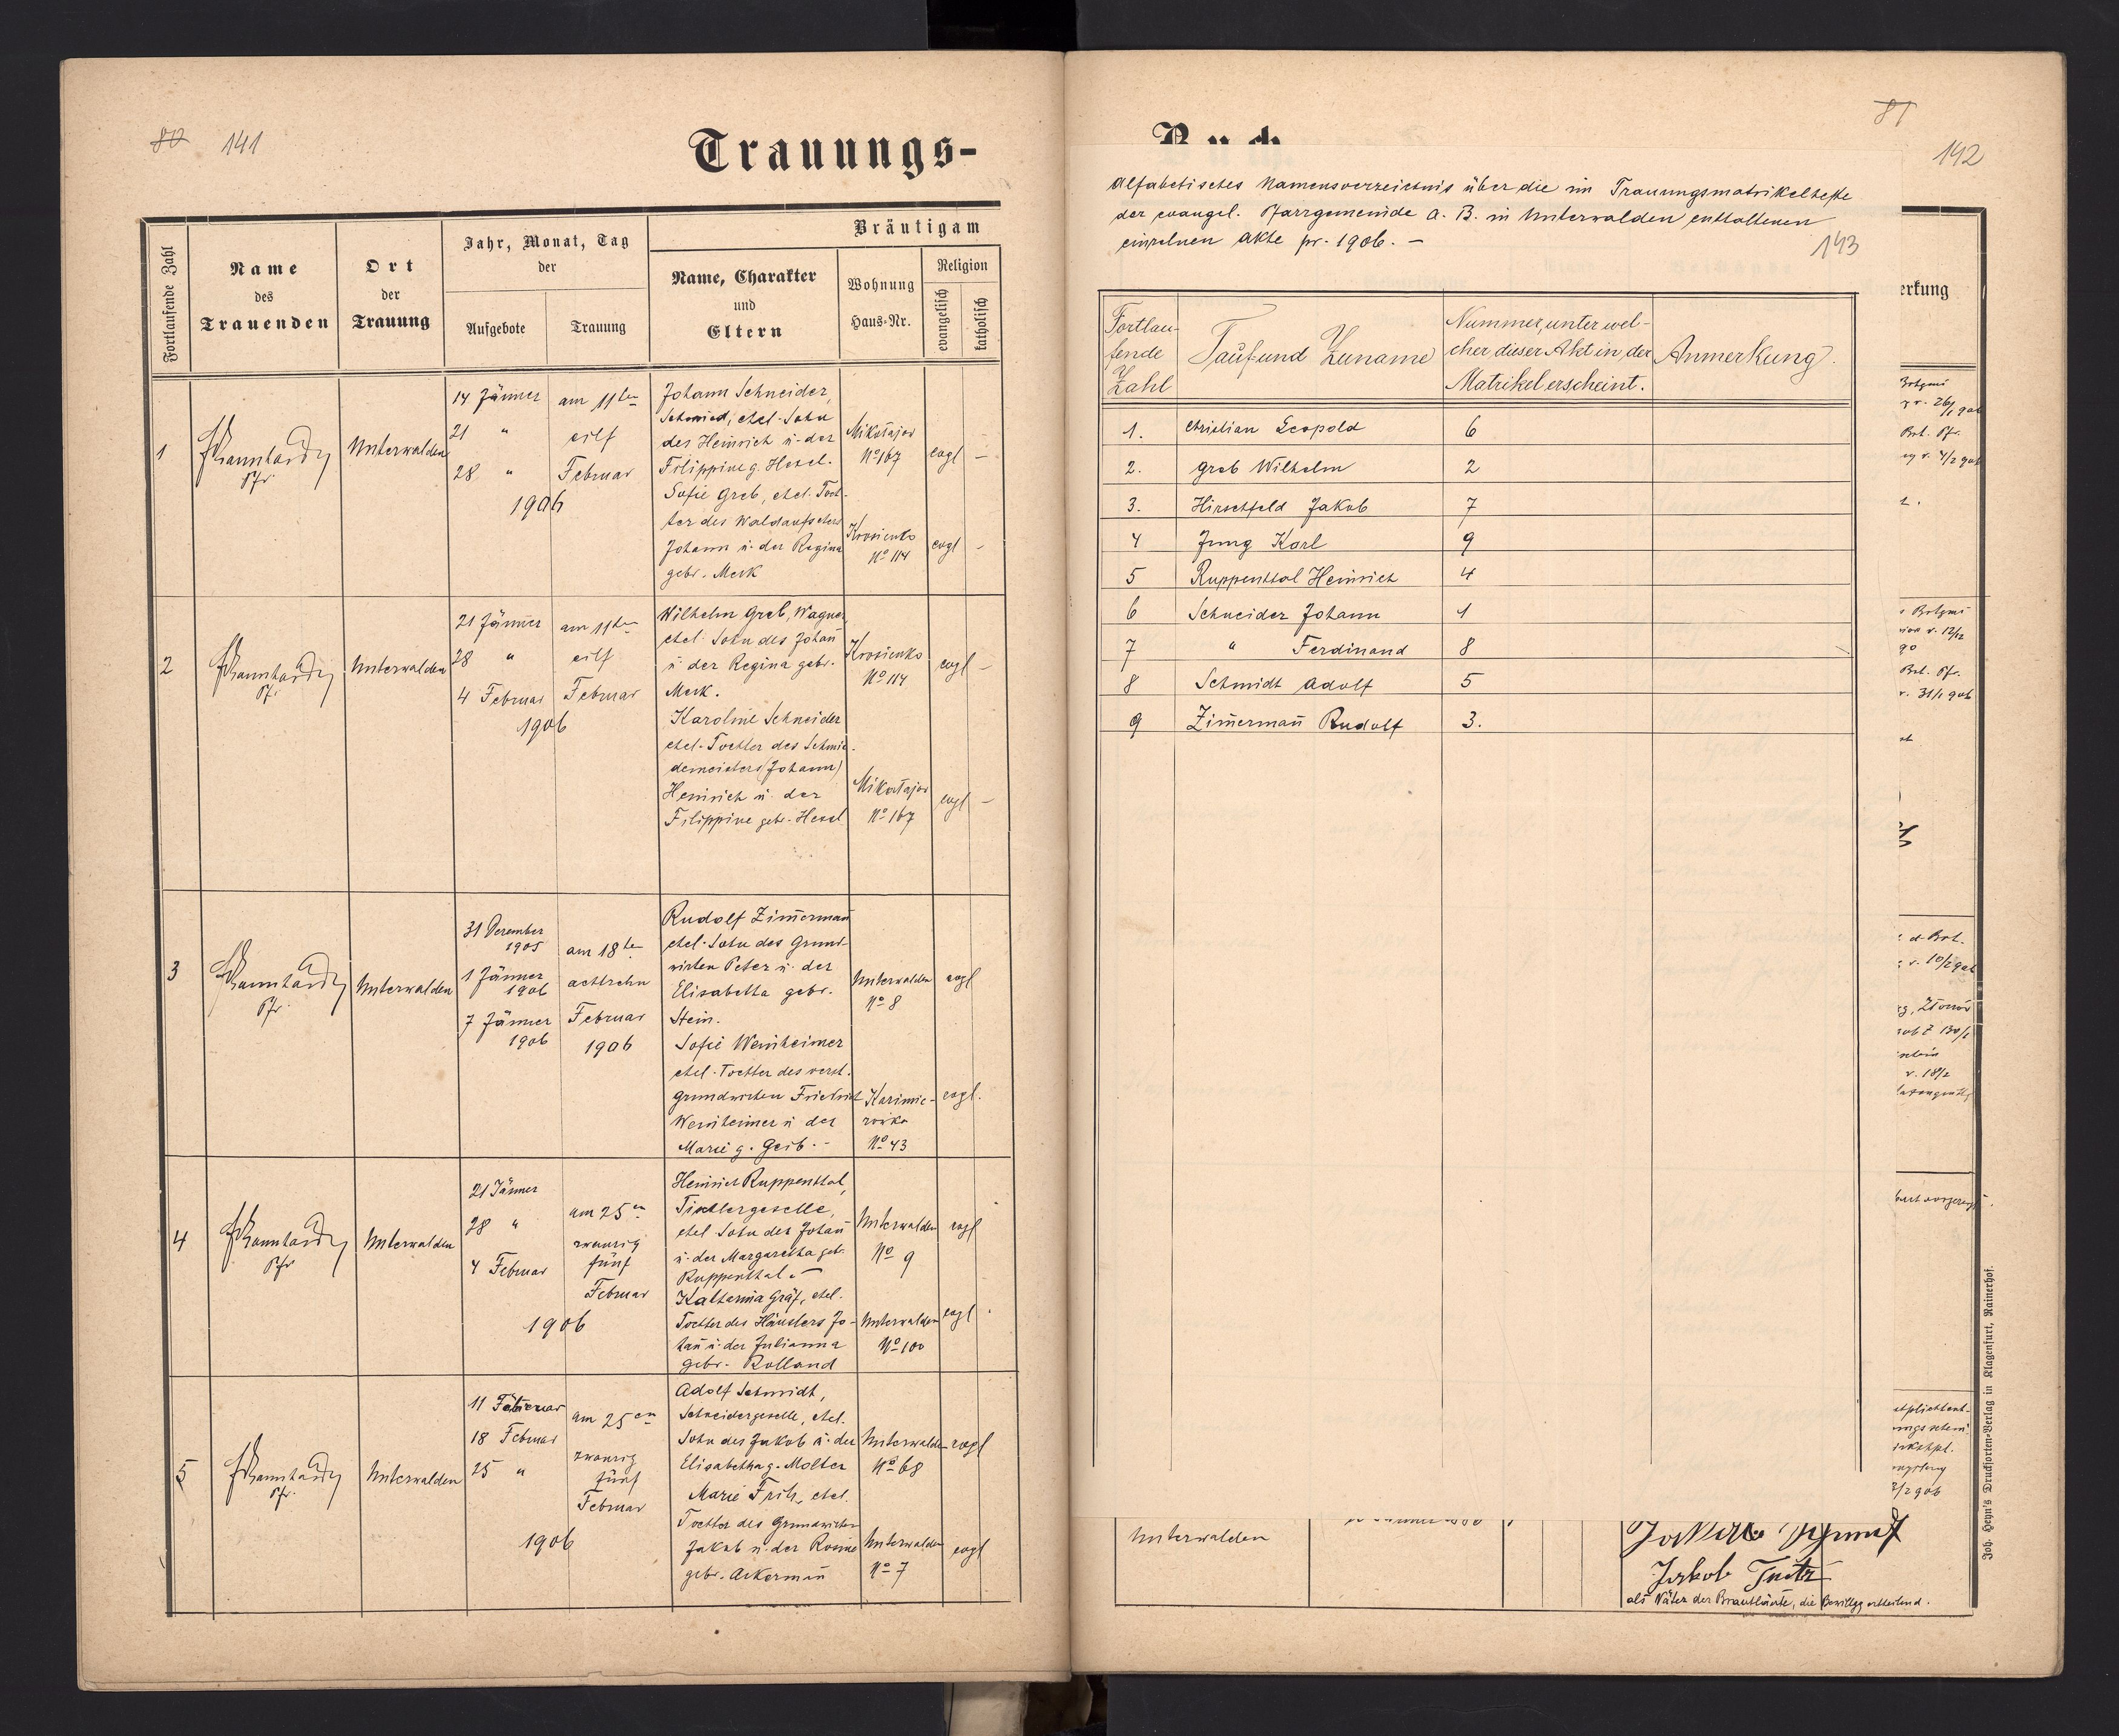 80 141
Trauungs-
Fortlaufende Zahl
Name
des
Trauenden
Ort
der
Trauung
Jahr, Monat, Tag
der
Aufgebote
Trauung
Bräutigam
Name, Charakter
und
Eltern
Wohnung
Haus-Nr.
Religion
evangelisch
katholisch
1
Pfr
Unterwalden
14 Jänner
21 "
28 "
am 11ten
eilf
Februar
1906
Johann Schneider,
Schmied, ehel. Sohn
des Heinrich u. der
Filippine g. Hexel.
Sofie Greb, ehel. Toch-
ter des Waldaufsehers
Johann u. der Regina
gebr. Merk
Mikołajow
No 167
evgl –
Krosienko
No 114
evgl –
2
Pfr
Unterwalden
21 Jänner
28 "
4 Februar
am 11ten
eilf
Februar
1906
Wilhelm Greb, Wagner
ehel. Sohn des Johañ
u. der Regina gebr.
Merk.
Karoline Schneider
ehel. Tochter des Schmie-
demeisters (Johann)
Heinrich u. der
Filippine geb. Hexel
Krosienko
No 114
evgl –
Mikołajow
No 167
evgl –
3
Pfr
Unterwalden
31 Dezember
1905
1 Jänner
1906
7 Jänner
1906
am 18ten
achtzehn
Februar
1906
Rudolf Zim̄ermañ
ehel. Sohn des Grund-
wirten Peter u. der
Elisabetha gebr.
Stein.
Sofie Weinheimer
ehel. Tochter des verst.
Grundwirten Friedrich
Weinheimer u der
Marie g. Geib. –
Unterwalden
No 8
evgl
Kazimie-
rówka
No 43
evgl.
4
Pfr
Unterwalden
21 Jänner
28 "
4 Februar
am 25en
zwanzig
fünf
Februar
1906
Heinrich Ruppenthal,
Tischlergeselle,
ehel Sohn des Johañ
u. der Margaretha geb.
Ruppenthal. –
Katharina Gräf, ehel.
Tochter des Häuslers Jo-
hañ u. der Julianna
gebr. Rolland
Unterwalden
No 9
evgl
Unterwalden
No 100
evgl
5
Pfr.
Unterwalden
11 Februar
18 Februar
25 "
am 25en
zwanzig
fünf
Februar
1906
Adolf Schmidt,
Schneidergeselle, ehel.
Sohn des Jakob u. der
Elisabetha g. Molter
Marie ehel.
Tochter des Grundwirten
Jakob u. der Rosine
gebr. Ackermañ
Unterwalden
No 68
evgl
Unterwalden
No 7
evgl
Buch.
81
142
Alfabetisches Namensverzeichnis über die im Trauungsmatrikelhefte
der evangel. Pfarrgemeinde A. B. in Unterwalden enthaltenen
einzelnen Akte pr. 1906. –
143
Fortlau-
fende
Zahl
Tauf und Zuname
Nummer, unter wel-
cher dieser Akt in der
Matrikel erscheint.
Anmerkung.
1. Christian Leopold 6
2. Greb Wilhelm 2
3. Hirschfeld Jakob 7
4 Jung Karl 9
5 Ruppenthal Heinrich 4
6 Schneider Johann 1
7 " Ferdinand 8
8 Schmidt Adolf 5
9 Zim̄ermañ Rudolf 3.
erkung
Unterwalden
Jakob
als Väter der Brautleute, die Bewilligg ertheilend.
Joh. Heyn's Drucksorten-Verlag in Klagenfurt, Rainerhof.